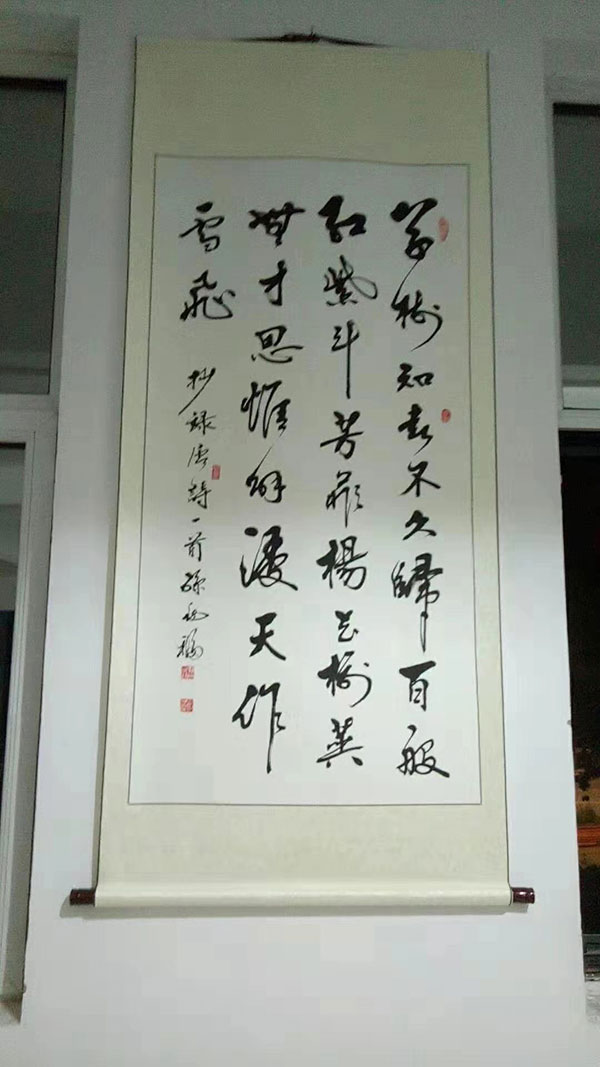 草樹知春不久歸百般
紅紫斗芳菲楊花榆莢
無才思惟解漫天作
雪飛
抄録唐詩一首孫